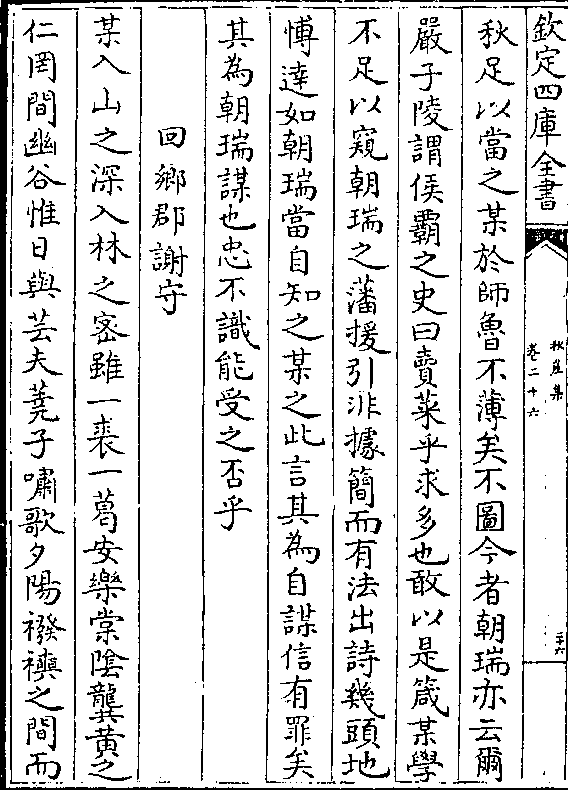 欽定四庫全書
秋崖集
卷二十六
二十六
秋足以當之某於師魯不薄矣不圖今者朝瑞亦云爾
嚴子陵謂侯霸之史曰賣菜乎求多也敢以是箴某學
不足以窺朝瑞之藩援引非據簡而有法出詩幾頭地
愽達如朝瑞當自知之某之此言其為自謀信有罪矣
其為朝瑞謀也忠不識能受之否乎
回鄉郡謝守
某入山之深入林之密雖一裘一葛安樂棠陰龔黄之
仁罔間幽谷惟日與芸夫蕘子嘯歌夕陽襏襫之間而